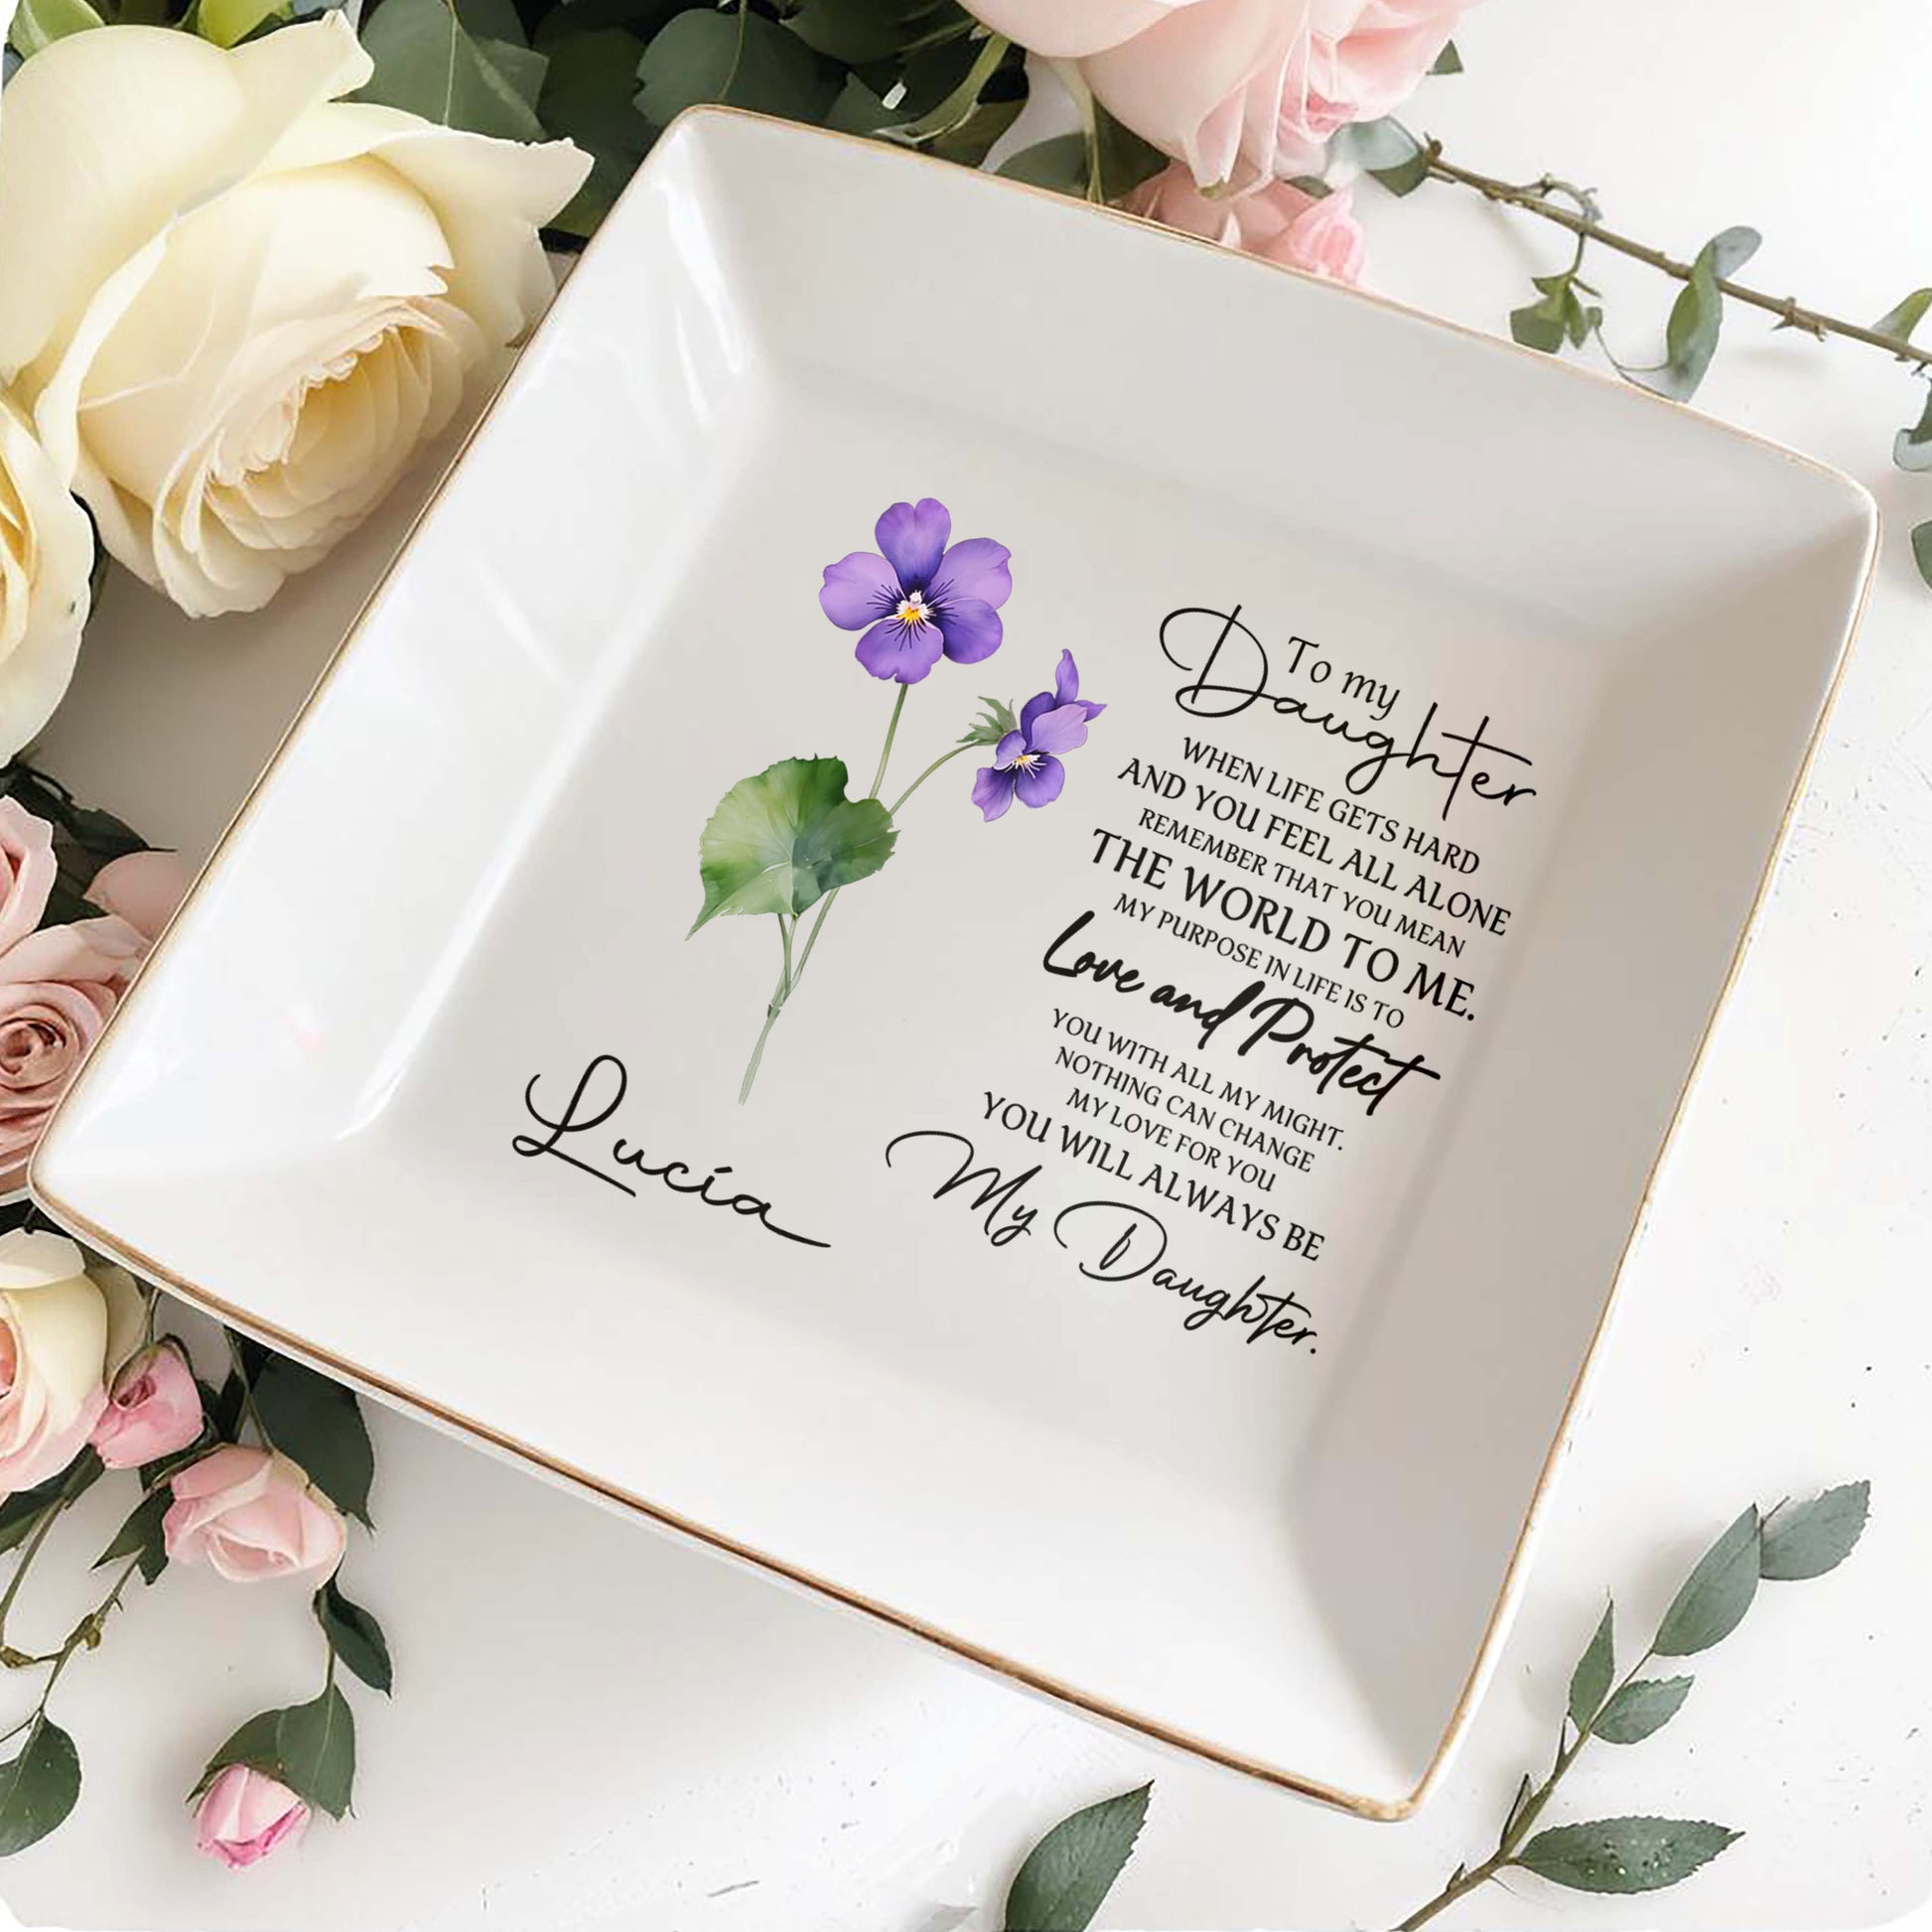 To my
Daughter
WHEN LIFE GETS HARD
AND YOU FEEL ALL ALONE
REMEMBER THAT YOU MEAN
THE WORLD TO ME.
MY PURPOSE IN LIFE IS TO
Love and Protect
YOU WITH ALL MY MIGHT.
NOTHING CAN CHANGE
MY LOVE FOR YOU
YOU WILL ALWAYS BE
My Daughter.
Lucía